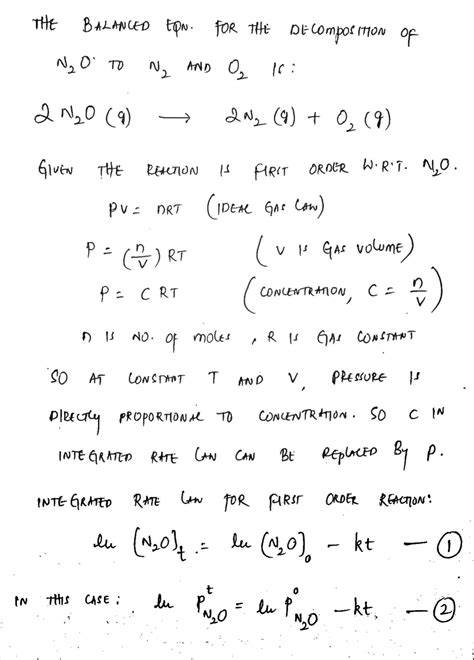 THE BALANCED EQN. FOR THE DECOMPOSITION OF
N₂O TO N₂ AND O₂ IS:
2 N₂O (g) → 2N₂ (g) + O₂ (g)
GIVEN THE REACTION IS FIRST ORDER W.R.T. N₂O.
PV = nRT (IDEAL GAS LAW)
P = (n/V) RT (V IS GAS VOLUME)
P = C RT (CONCENTRATION, C = n/V)
n IS NO. OF MOLES, R IS GAS CONSTANT
SO AT CONSTANT T AND V, PRESSURE IS
DIRECTLY PROPORTIONAL TO CONCENTRATION. SO C IN
INTEGRATED RATE LAW CAN BE REPLACED By P.
INTEGRATED RATE LAW FOR FIRST ORDER REACTION:
ln [N₂O]ₜ = ln [N₂O]₀ - kt — ①
IN THIS CASE: ln Pᵗ_N₂O = ln P⁰_N₂O - kt. — ②